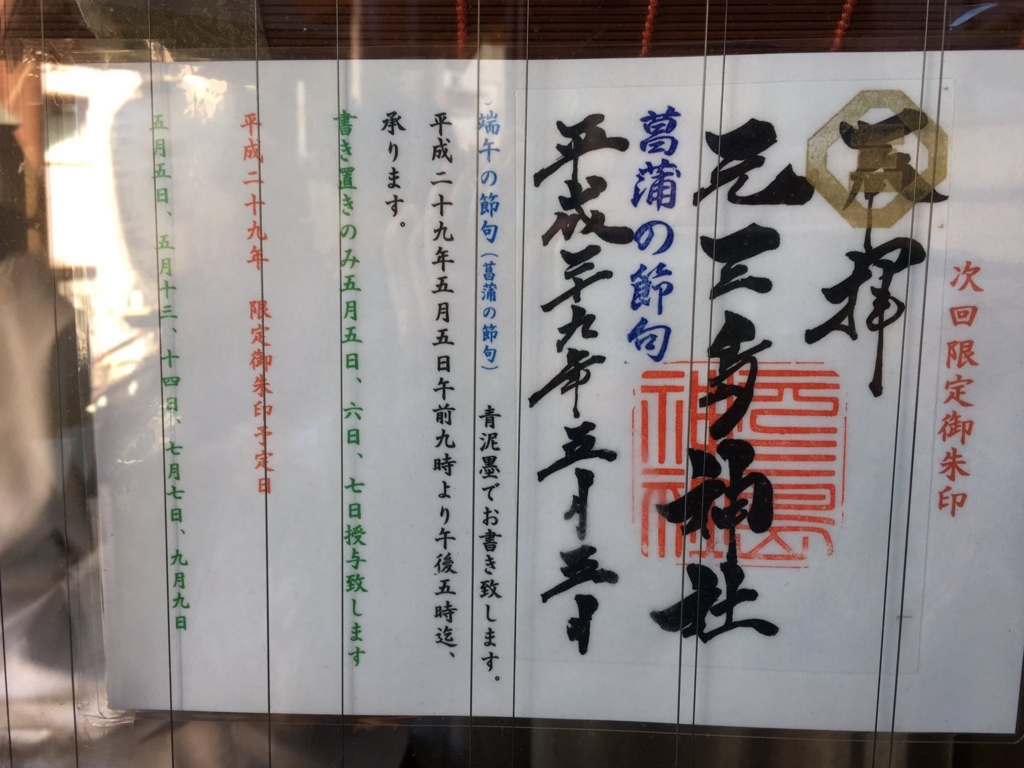 次回限定御朱印
奉拝
元三島神社
菖蒲の節句
平成二十九年五月五日
端午の節句（菖蒲の節句）　青泥墨でお書き致します。
平成二十九年五月五日午前九時より午後五時迄、
承ります。
書き置きのみ五月五日、六日、七日授与致します
平成二十九年　限定御朱印予定日
五月五日、五月十三、十四日、七月七日、九月九日